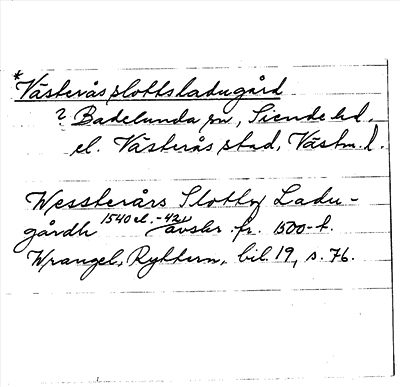 *Västerås slottsladugård
? Badelunda sn, Siende hd.
el. Västerås stad, Västm. l.
Wessterårs Slotthz Ladu-
gårdh 1540 el. -42 avskr. fr. 1500-t.
Wrangel, Ryttern, bil. 19, s. 76.